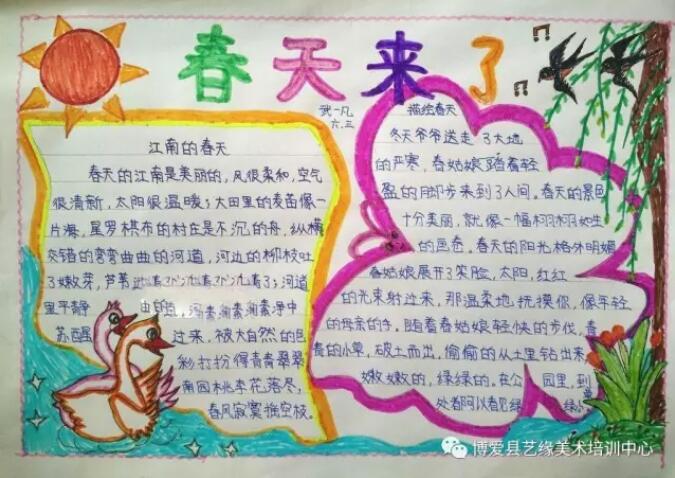 春天来了
武一凡
六.三
江南的春天
春天的江南是美丽的，风很柔和，空气
很清新，太阳很温暖；大田里的麦苗像一
片海，星罗棋布的村庄是不沉的舟，纵横
交错的弯弯曲曲的河道，河边的柳枝吐
了嫩芽，芦苇 ；河道
里平静
苏醒 过来，被大自然的色
彩打扮得青青翠翠
南园桃李花落尽，
春风寂寞摇空枝。
描绘春天
冬天爷爷送走了大地
的严寒，春姑娘踏着轻
盈的脚步来到了人间。春天的景色
十分美丽，就像一幅栩栩如生
的画卷。春天的阳光格外明媚
春姑娘展开了笑脸，太阳，红红
的光束射过来，那温柔地抚摸你，像年轻
的母亲的手。随着春姑娘轻快的步伐，
的小草，破土而出，偷偷的从土里钻出来，
嫩嫩的，绿绿的，在公园里，到
处都可以看见绿
博爱县艺缘美术培训中心